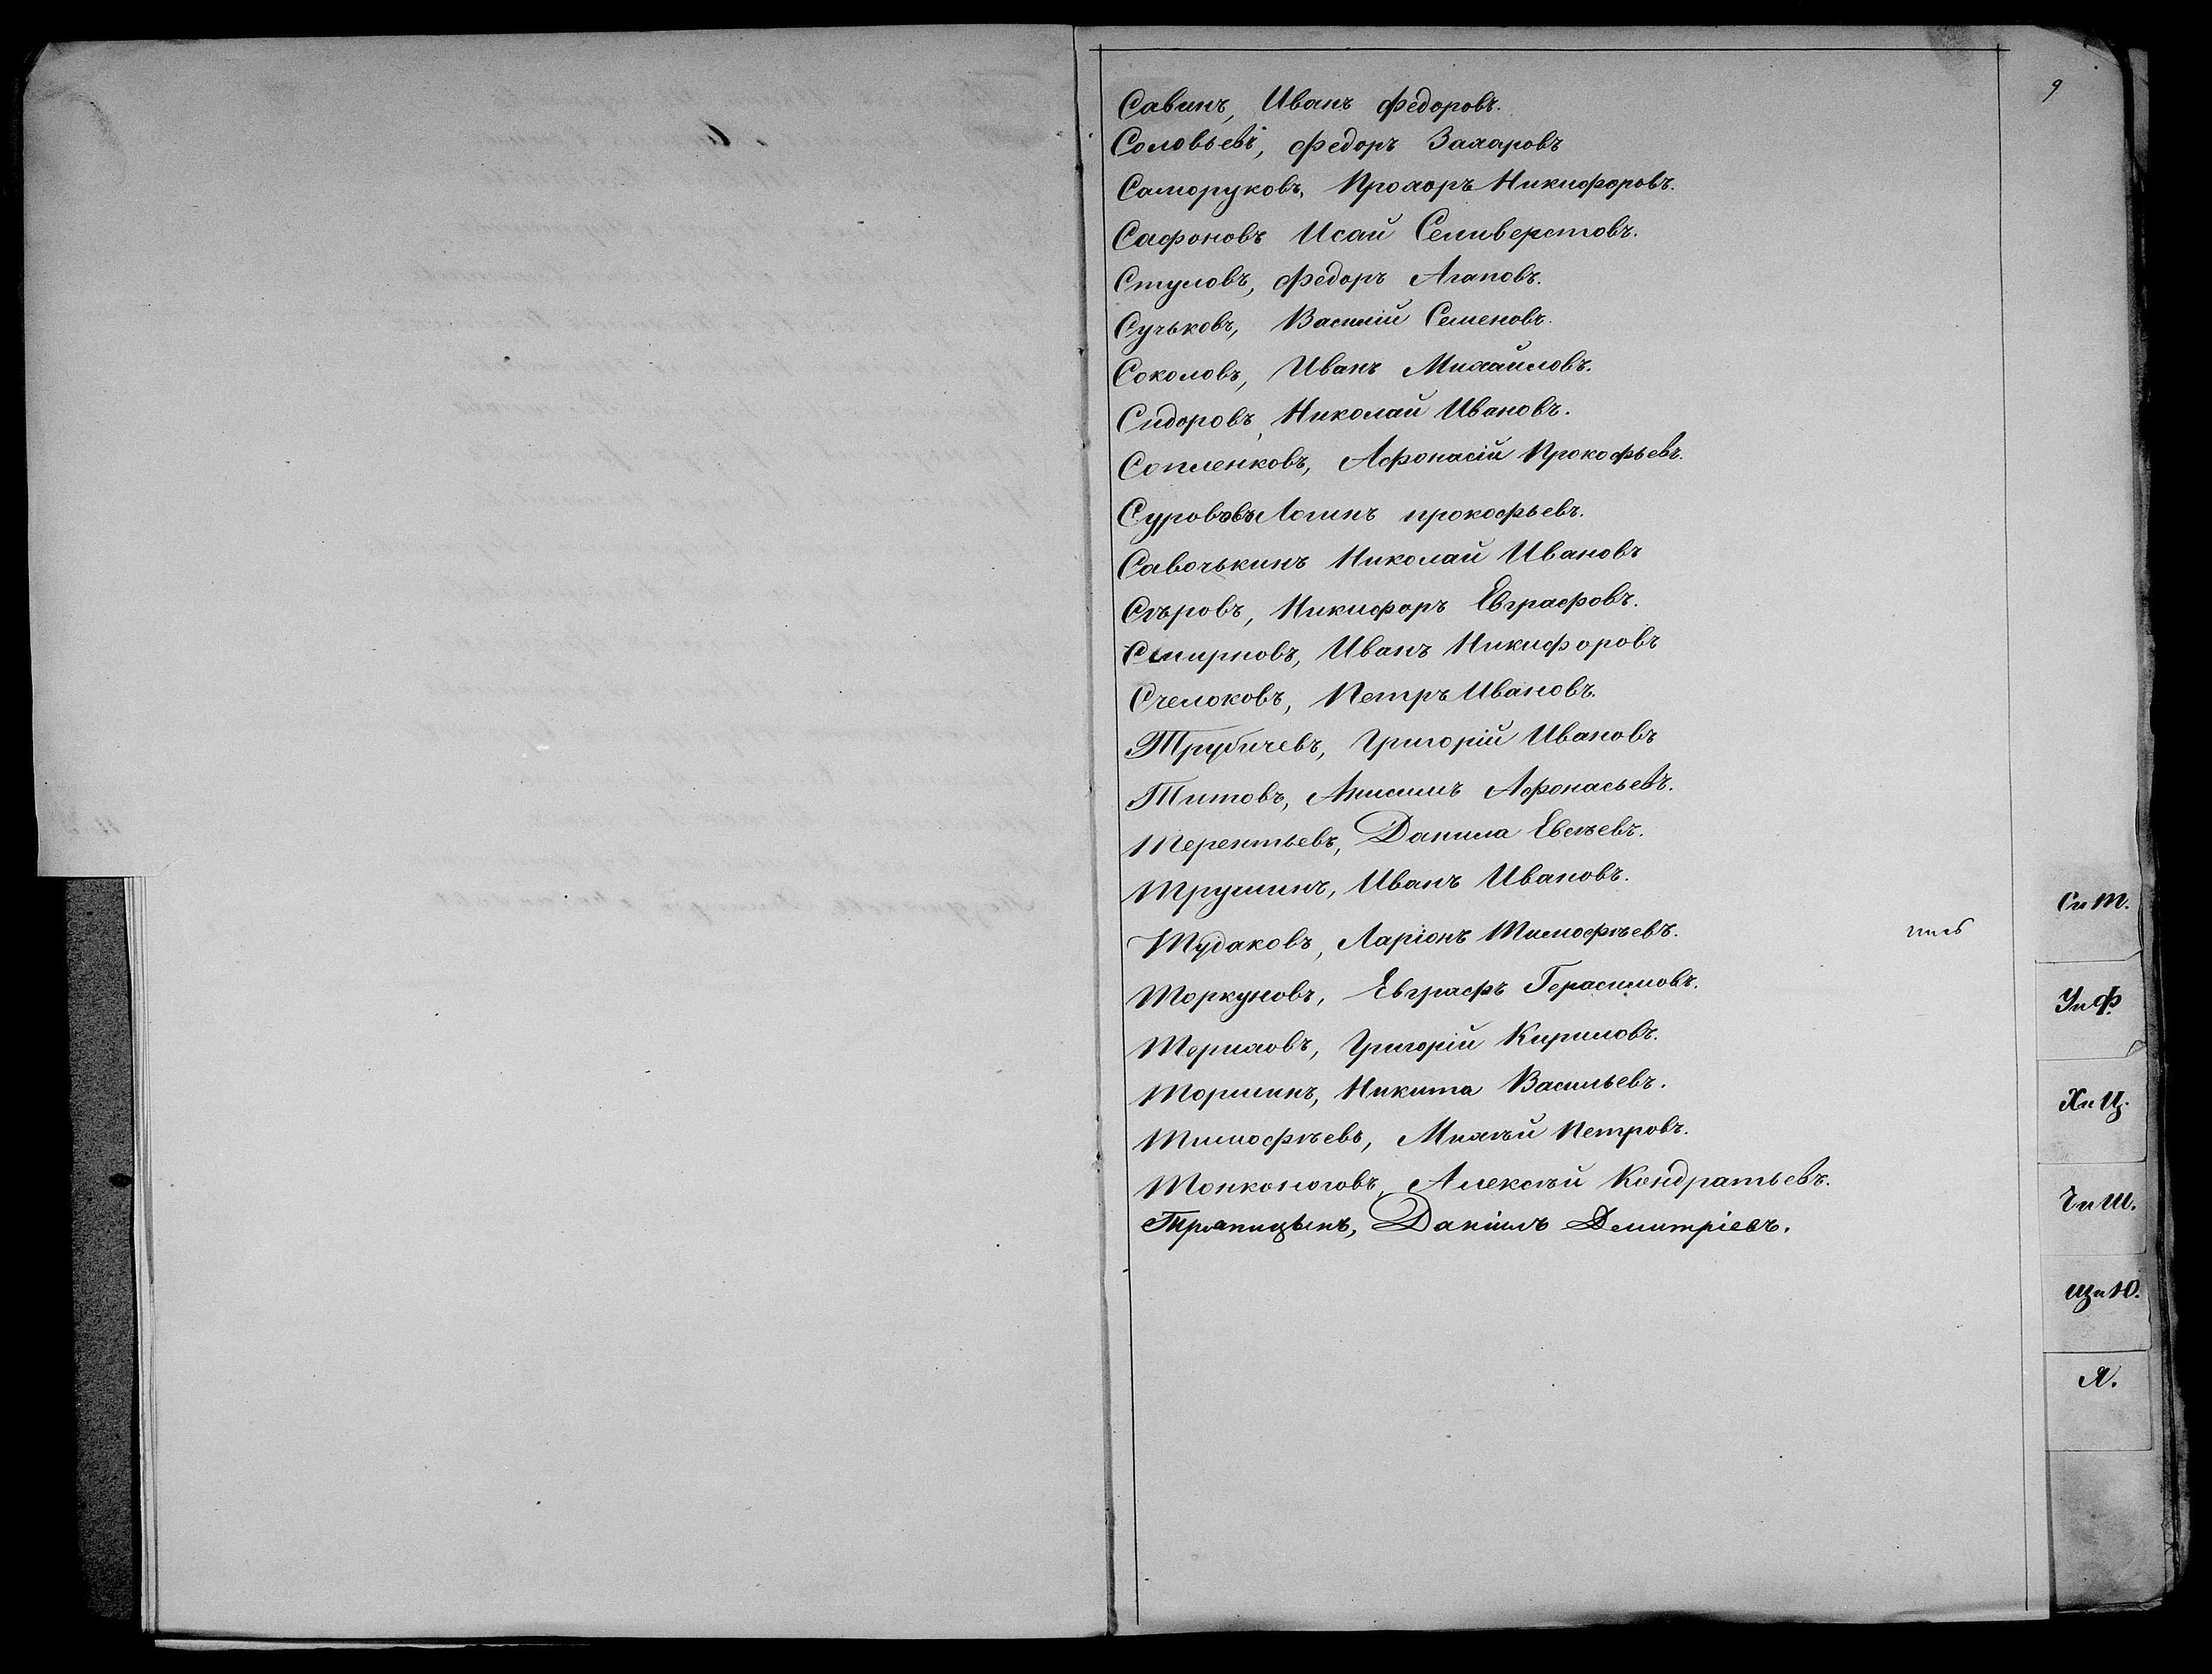 9
Савинъ, Иванъ Федоровъ.
Соловьевъ, Федоръ Захаровъ
Саморуковъ, Прохоръ Никифоровъ.
Сафоновъ Исай Селиверстовъ.
Стуловъ, Федоръ Агаповъ.
Сучьковъ, Василій Семеновъ.
Соколовъ, Иванъ Михайловъ.
Сидоровъ, Николай Ивановъ.
Сопленковъ, Афонасій Прокофьевъ.
Сурововъ Логинъ прокофьевъ.
Савочькинъ Николай Ивановъ
Сѣровъ, Никифоръ Евграфовъ.
Смирновъ, Иванъ Никифоровъ
Счелоковъ, Петръ Ивановъ.
Трубичевъ, Григорій Ивановъ
Титовъ, Анисимъ Афонасьевъ.
Терентьевъ, Данила Евсѣевъ.
Трушинъ, Иванъ Ивановъ.
Тудаковъ, Ларіонъ Тимофѣевъ.
Торкуновъ, Евграфъ Герасимовъ.
Териховъ, Григорій Кириловъ.
Торшинъ, Никита Васильевъ.
Тимофѣевъ, Михѣй Петровъ.
Тонконоговъ, Алексѣй Кондратьевъ.
Тряпицынъ, Даніилъ Демитріевъ.
С и Т.
У и Ф.
Х и Ц.
Ч и Ш.
Щ и Ю.
Я.